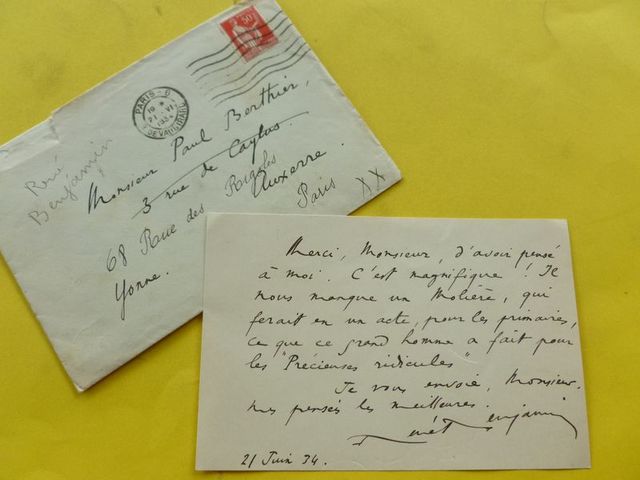 50c
PARIS - 6
21 VI
1934
R. DE VAUGIRARD
René
Benjamin
Monsieur Paul Berthier,
3 rue de Caylus.
68 Rue des Rigoles
Auxerre.
Paris XX
Yonne.
Merci, Monsieur, d'avoir pensé
à moi. C'est magnifique ! Il
nous manque un Molière, qui
ferait en un acte, pour les primaires,
ce que ce grand homme a fait pour
les "Précieuses ridicules"
Je vous envoie, Monsieur,
mes pensées les meilleures.
René Benjamin
21 Juin 34.